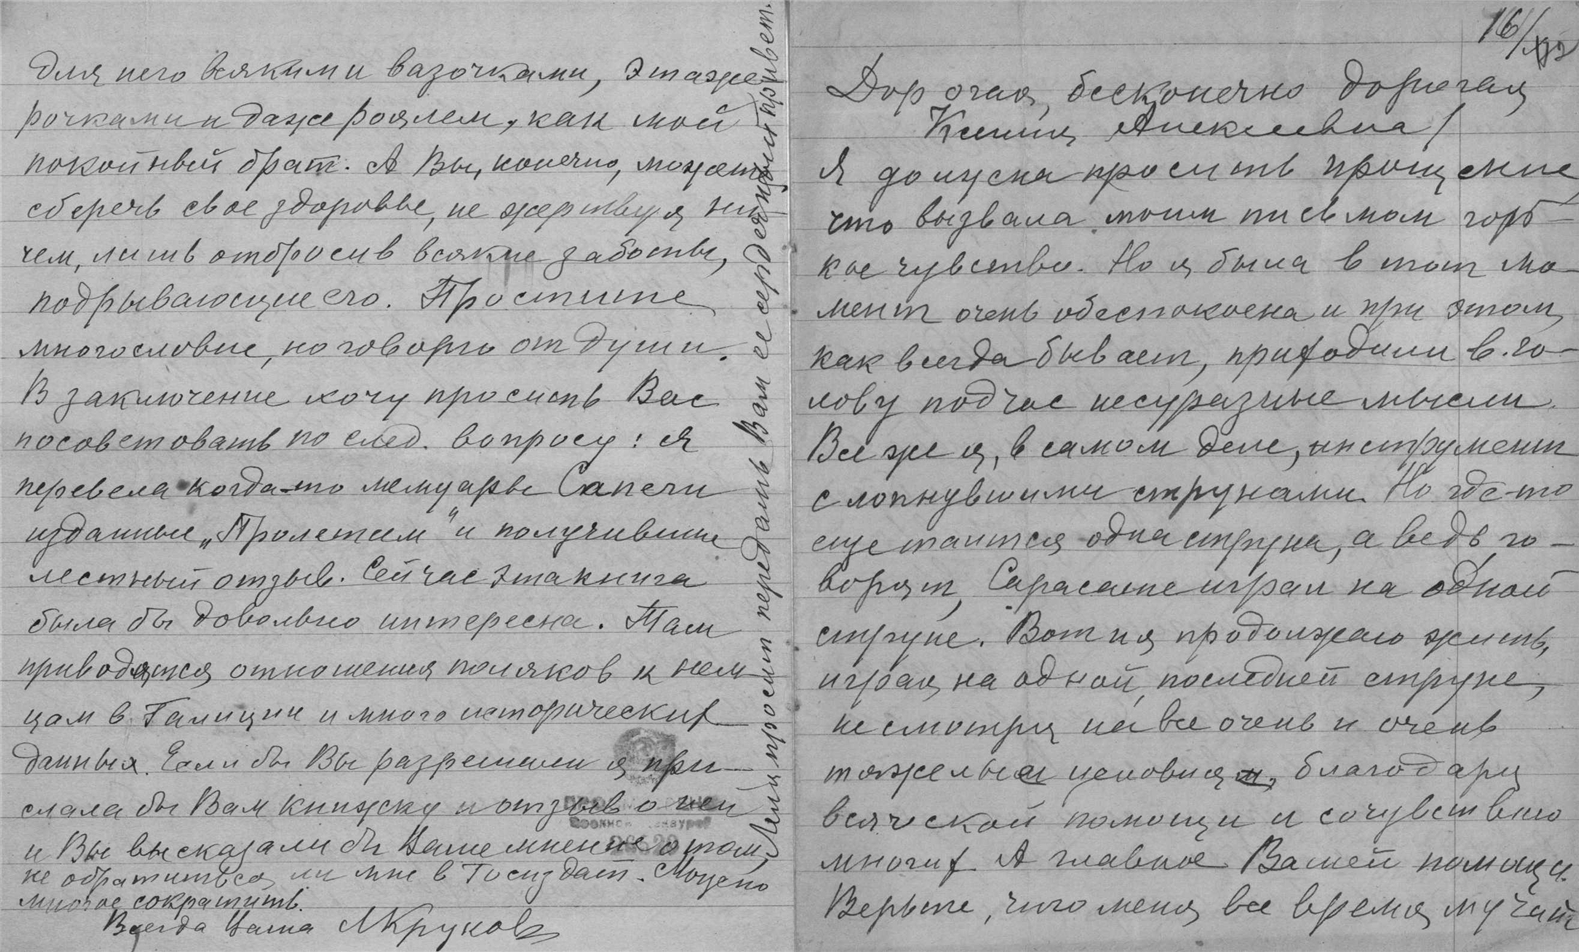 16/XII
Дорогая, бесконечно дорогая
Ксения Алексеевна!
Я должна просить прощение,
что вызвала моим письмом горь-
кое чувство. Но я была в тот мо-
мент очень обеспокоена и при этом,
как всегда бывает, приходили в го-
лову подчас несуразные мысли.
Все же я, в самом деле, инструмент
с лопнувшими струнами. Но где-то
еще таится одна струна, а ведь, го-
ворят, Сарасате играл на одной
струне. Вот и я продолжаю жить,
играя на одной, последней струне,
несмотря на все очень и очень
тяжелые условия, благодаря
всяческой помощи и сочувствию
многих. А главное Вашей помощи.
Верьте, что меня все время мучает
для него всякими вазочками, этаже-
рочками и даже роялем, как мой
покойный брат. А Вы, конечно, можете
сберечь свое здоровье, не жертвуя ни-
чем, лишь отбросив всякие заботы,
подрывающие его. Простите
многословие, но говорю от души.
В заключение хочу просить Вас
посоветовать по след. вопросу: я
перевела когда-то мемуары Сапеги
изданные „Пролетам" и получившие
лестный отзыв. Сейчас эта книга
была бы довольно интересна. Там
приводятся отношения поляков к нем-
цам в Галиции и много исторических
данных. Если бы Вы разрешили я при-
слала бы Вам книжку и отзыв о ней
и Вы высказали бы Ваше мнение о том,
не обратиться ли мне в Госиздат. Можно
многое сократить.
Всегда Ваша ЛКруков
просит передать Вам ее сердечный привет.